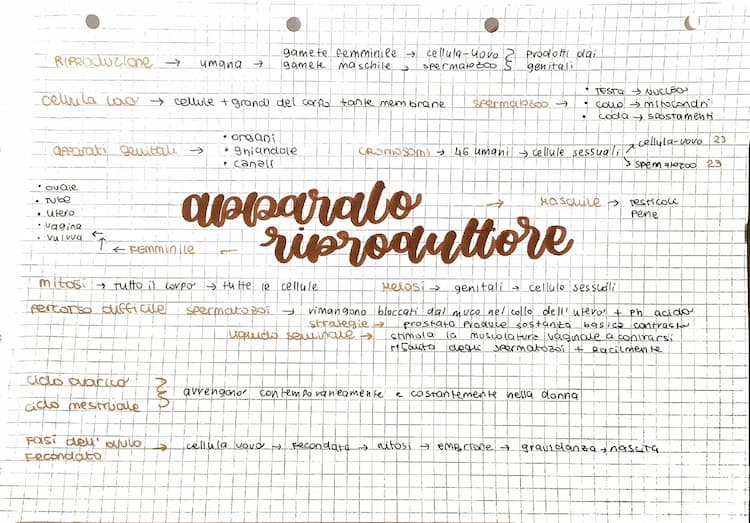 RIPRODUZIONE → umana → gamete femminile → cellula-uovo } prodotti dai
gamete maschile → spermatozoo } genitali
cellula uovo → cellule + grandi del corpo tante membrane
spermatozoo → • TESTA → NUCLEO
• collo → mitocondri
• coda → spostamenti
apparati genitali → • organi
• ghiandole
• canali
CROMOSOMI → 46 umani → cellule sessuali → cellula-uovo 23
→ spermatozoo 23
apparato
riproduttore
→ MASCHILE → testicoli
pene
← FEMMINILE ←
• ovaie
• tube
• utero
• vagina
• vulva
mitosi → tutto il corpo → tutte le cellule
Meiosi → genitali → cellule sessuali
percorso difficile spermatozoi → rimangono bloccati dal muco nel collo dell'utero + ph acido
strategie → prostata produce sostanza basica contrasto
liquido seminale → stimola la muscolatura vaginale a contrarsi
risalita degli spermatozoi + facilmente
ciclo ovarico }
ciclo mestruale } avvengono contemporaneamente e costantemente nella donna
Fasi dell'ovulo
fecondato → cellula uovo → fecondata → mitosi → embrione → gravidanza → nascita